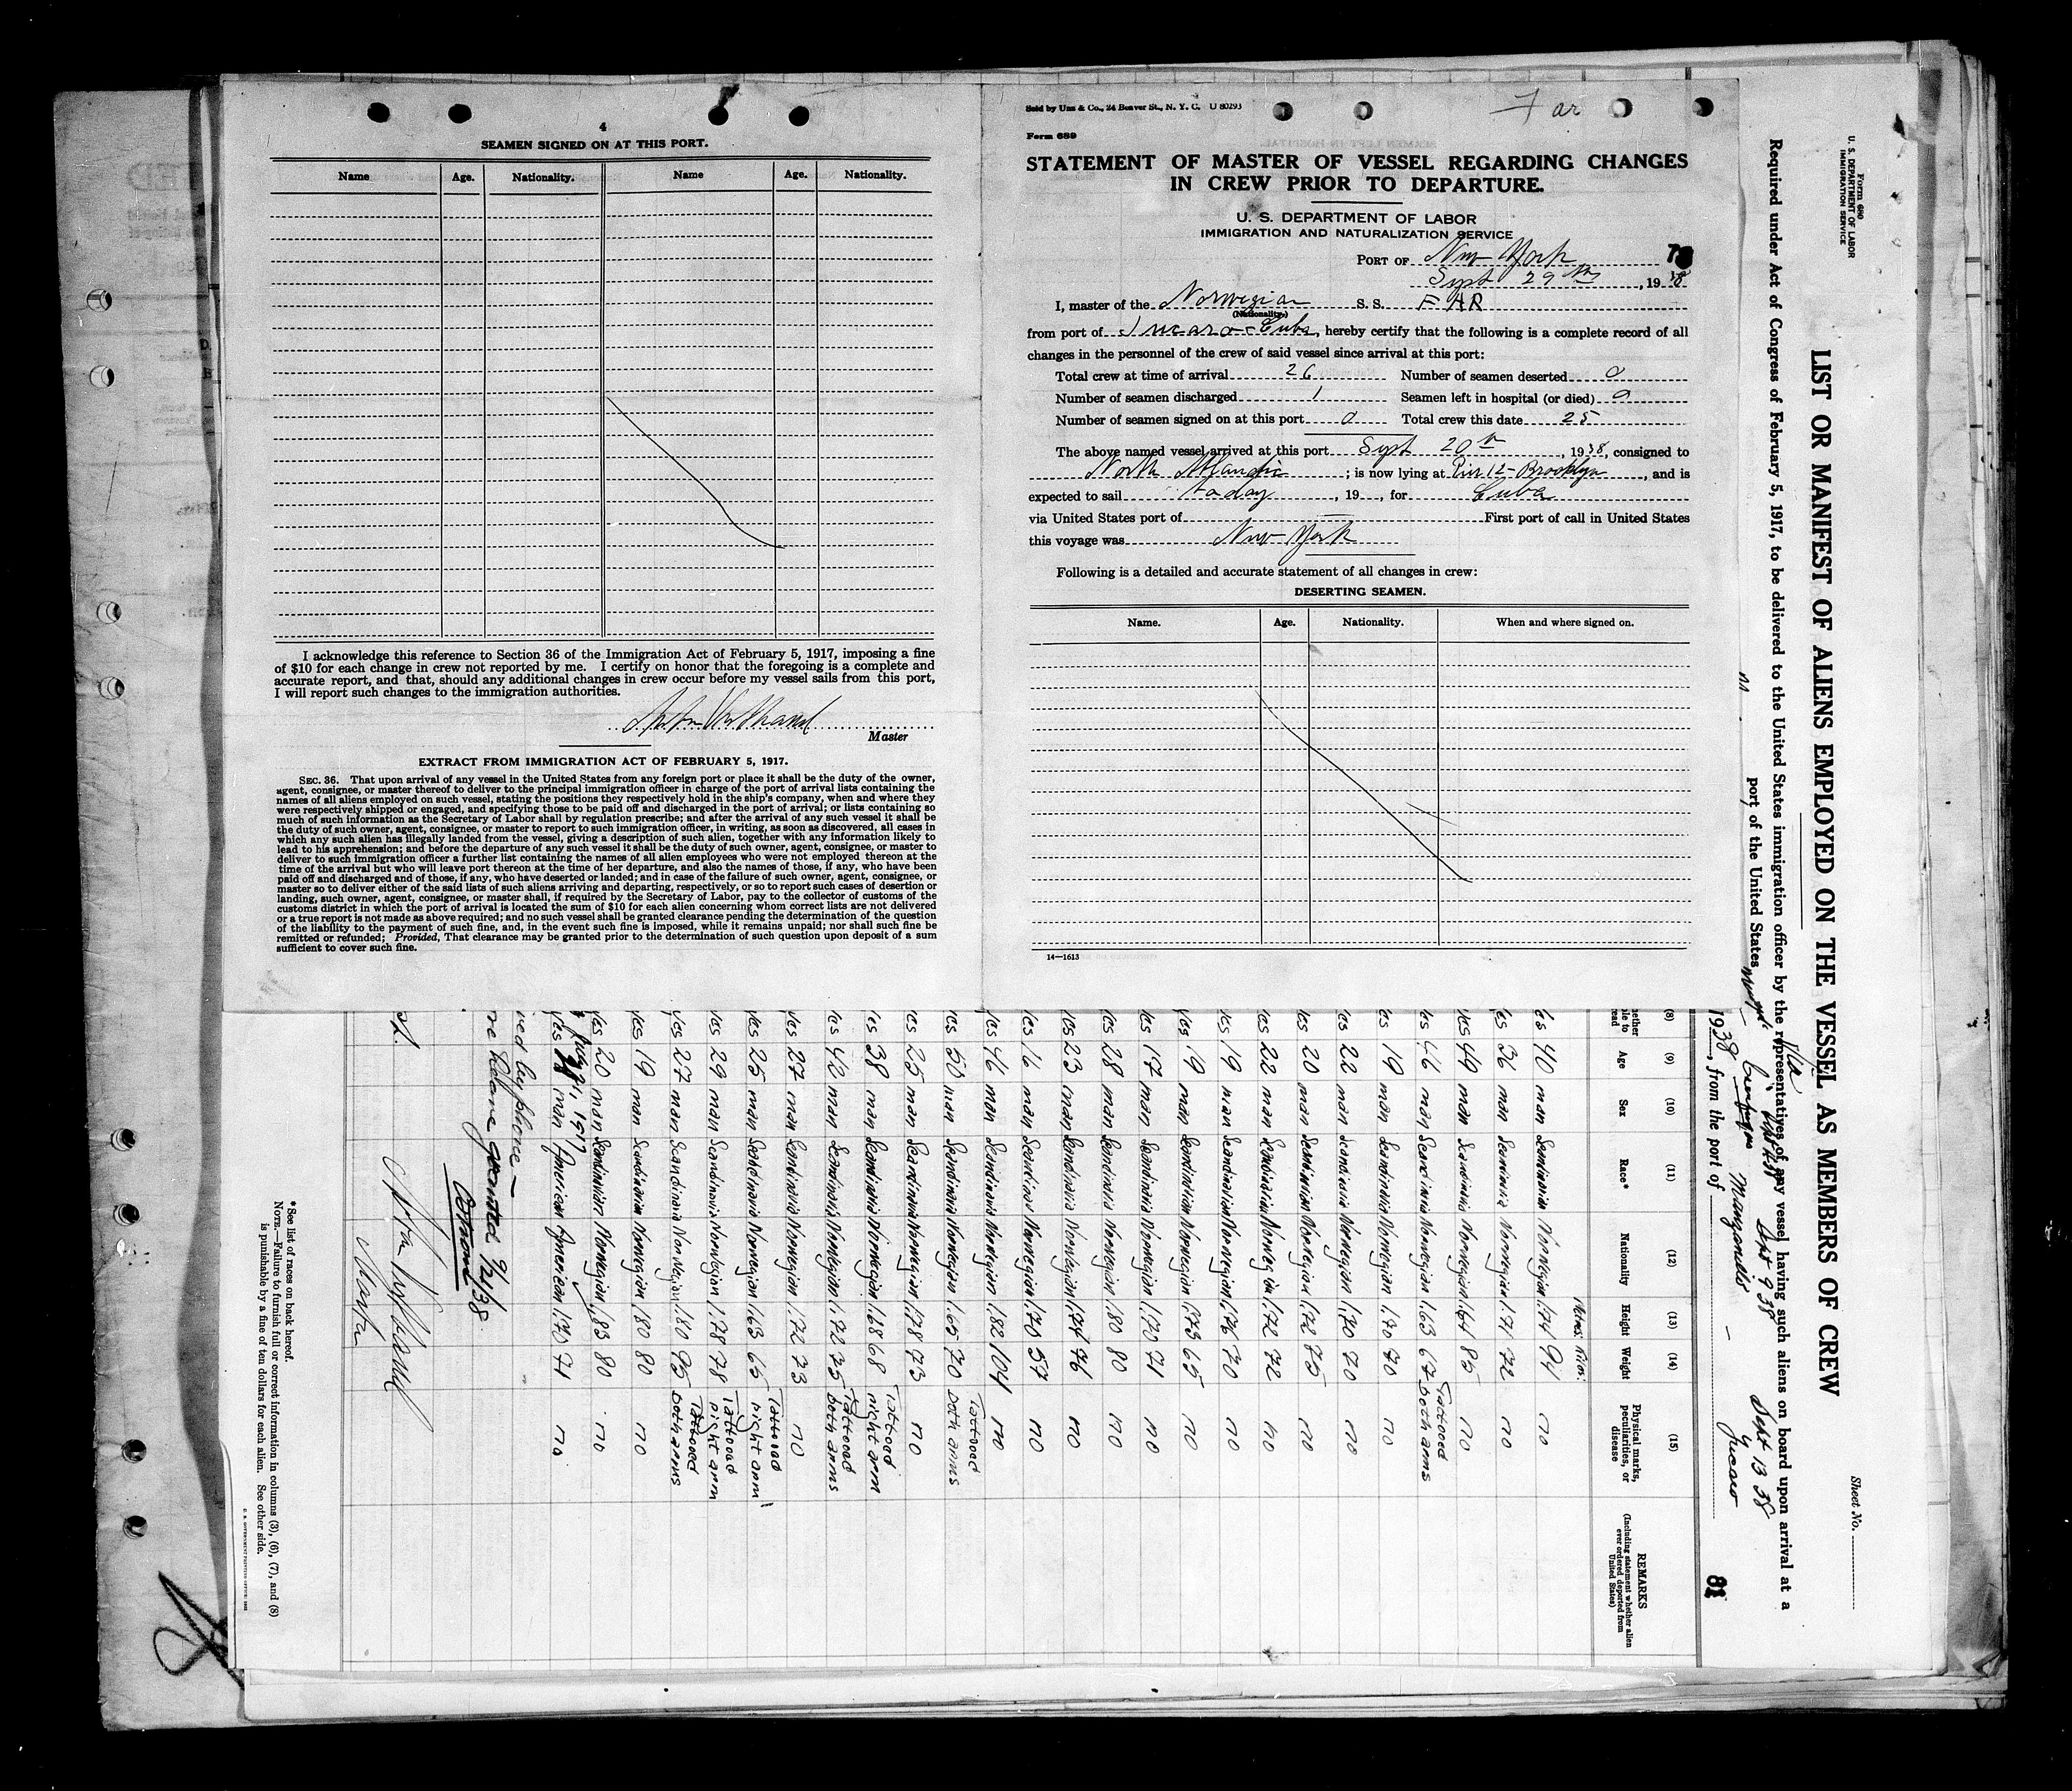 4
SEAMEN SIGNED ON AT THIS PORT.
Name Age. Nationality. Name Age. Nationality.
I acknowledge this reference to Section 36 of the Immigration Act of February 5, 1917, imposing a fine
of $10 for each change in crew not reported by me. I certify on honor that the foregoing is a complete and
accurate report, and that, should any additional changes in crew occur before my vessel sails from this port,
I will report such changes to the immigration authorities.
Master
EXTRACT FROM IMMIGRATION ACT OF FEBRUARY 5, 1917.
SEC. 36. That upon arrival of any vessel in the United States from any foreign port or place it shall be the duty of the owner,
agent, consignee, or master thereof to deliver to the principal immigration officer in charge of the port of arrival lists containing the
names of all aliens employed on such vessel, stating the positions they respectively hold in the ship's company, when and where they
were respectively shipped or engaged, and specifying those to be paid off and discharged in the port of arrival; or lists containing so
much of such information as the Secretary of Labor shall by regulation prescribe; and after the arrival of any such vessel it shall be
the duty of such owner, agent, consignee, or master to report to such immigration officer, in writing, as soon as discovered, all cases in
which any such alien has illegally landed from the vessel, giving a description of such alien, together with any information likely to
lead to his apprehension; and before the departure of any such vessel it shall be the duty of such owner, agent, consignee, or master to
deliver to such immigration officer a further list containing the names of all alien employees who were not employed thereon at the
time of the arrival but who will leave port thereon at the time of her departure, and also the names of those, if any, who have been
paid off and discharged and of those, if any, who have deserted or landed; and in case of the failure of such owner, agent, consignee, or
master so to deliver either of the said lists of such aliens arriving and departing, respectively, or so to report such cases of desertion or
landing, such owner, agent, consignee, or master shall, if required by the Secretary of Labor, pay to the collector of customs of the
customs district in which the port of arrival is located the sum of $10 for each alien concerning whom correct lists are not delivered
or a true report is not made as above required; and no such vessel shall be granted clearance pending the determination of the question
of the liability to the payment of such fine, and, in the event such fine is imposed, while it remains unpaid; nor shall such fine be
remitted or refunded; Provided, That clearance may be granted prior to the determination of such question upon deposit of a sum
sufficient to cover such fine.
Sold by Unz & Co., 24 Beaver St., N. Y. C. U 80293
Far
Form 689
STATEMENT OF MASTER OF VESSEL REGARDING CHANGES
IN CREW PRIOR TO DEPARTURE.
U. S. DEPARTMENT OF LABOR
IMMIGRATION AND NATURALIZATION SERVICE
PORT OF New York
Sept 29th, 1938
I, master of the Norwegian S. S. FAR
(Nationality)
from port of Jucaro-Cuba, hereby certify that the following is a complete record of all
changes in the personnel of the crew of said vessel since arrival at this port:
Total crew at time of arrival 26 Number of seamen deserted 0
Number of seamen discharged 1 Seamen left in hospital (or died) 0
Number of seamen signed on at this port 0 Total crew this date 25
The above named vessel arrived at this port Sept 20th, 1938, consigned to
North Atlantic; is now lying at Pier 12-Brooklyn, and is
expected to sail today, 19 , for Cuba
via United States port of — First port of call in United States
this voyage was New York
Following is a detailed and accurate statement of all changes in crew:
DESERTING SEAMEN.
Name. Age. Nationality. When and where signed on.
14—1613
Form 680
U. S. DEPARTMENT OF LABOR
IMMIGRATION SERVICE
Sheet No.
LIST OR MANIFEST OF ALIENS EMPLOYED ON THE VESSEL AS MEMBERS OF CREW
Required under Act of Congress of February 5, 1917, to be delivered to the United States immigration officer by the representatives of any vessel having such aliens on board upon arrival at a
port of the United States
Sept 9 38 Sept 13 38
1938, from the port of Manzanillo - Jucaro
81
(8) (9) (10) (11) (12) (13) (14) (15)
Age Sex Race* Nationality Height Weight Physical marks, peculiarities, or disease REMARKS
(Including statement whether alien ever ordered deported from United States)
yes 40 man Scandinavia Norwegian 1.74 94 no
yes 36 man Scandinavia Norwegian 1.71 72 no
yes 49 man Scandinavia Norwegian 1.64 85 no
yes 46 man Scandinavia Norwegian 1.63 67 Tattooed both arms
yes 19 man Scandinavia Norwegian 1.70 70 no
yes 22 man Scandinavia Norwegian 1.70 70 no
yes 20 man Scandinavia Norwegian 1.72 75 no
yes 22 man Scandinavia Norwegian 1.72 72 no
yes 19 man Scandinavia Norwegian 1.76 70 no
yes 19 man Scandinavia Norwegian 1.73 65 no
yes 17 man Scandinavia Norwegian 1.70 71 no
yes 28 man Scandinavia Norwegian 1.80 80 no
yes 23 man Scandinavia Norwegian 1.74 76 no
yes 16 man Scandinavia Norwegian 1.70 57 no
yes 46 man Scandinavia Norwegian 1.82 104 no
yes 50 man Scandinavia Norwegian 1.65 70 Tattooed both arms
yes 25 man Scandinavia Norwegian 1.78 73 no
yes 38 man Scandinavia Norwegian 1.68 68 Tattooed right arm
yes 42 man Scandinavia Norwegian 1.72 75 Tattooed both arms
yes 27 man Scandinavia Norwegian 1.72 73 no
yes 25 man Scandinavia Norwegian 1.63 65 Tattooed right arm
yes 29 man Scandinavia Norwegian 1.78 78 Tattooed right arm
yes 27 man Scandinavia Norwegian 1.80 95 Tattooed both arms
yes 19 man Scandinavia Norwegian 1.80 80 no
yes 20 man Scandinavia Norwegian 1.83 80 no
yes man American American 1.73 71 no
by phone —
granted 9/21/38
Master
*See list of races on back hereof.
NOTE.—Failure to furnish full or correct information in columns (3), (6), (7), and (8)
is punishable by a fine of ten dollars for each alien. See other side.